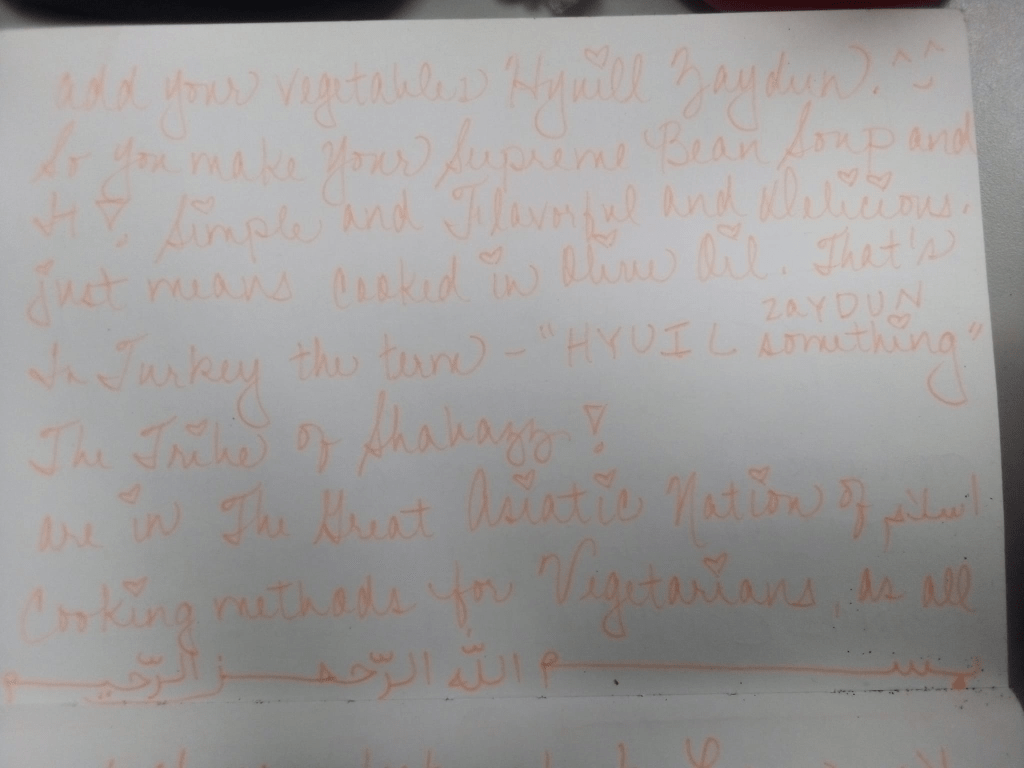 add your vegetables Hyuill Zaydun. ^ ^
So you make your Supreme Bean Soup and
It! Simple and Flavorful and Delicious.
just means cooked in Olive Oil. That's
ZaYDUN
In Turkey the term - "HYUIL something"
The Tribe of Shabazz!
are in The Great Asiatic Nation of اسلام
Cooking methods for Vegetarians, as all
بسم الله الرّحمن الرّحيم